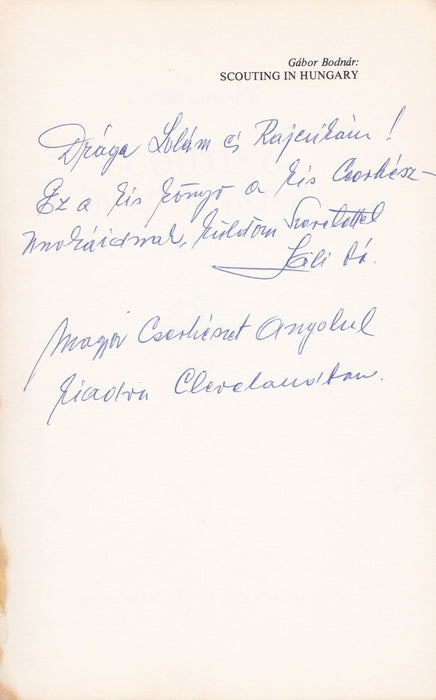 Gábor Bodnár:
SCOUTING IN HUNGARY
Drága Lolám és Rajcsikám!
Ez a kis könyv a kis Cserkész-
unokáidnak, küldöm Szeretettel
Lali bá.
Magyar Cserkészet Angolul
kiadva Clevelandban.